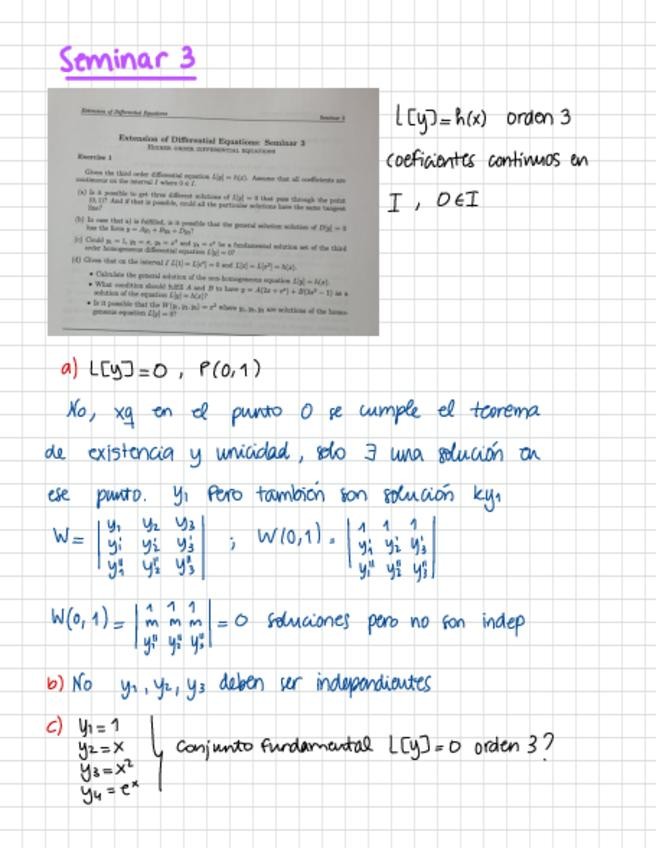 Seminar 3
Extension of Differential Equations
Seminar 3
Extension of Differential Equations: Seminar 3
HIGHER ORDER DIFFERENTIAL EQUATIONS
Exercise 1
Given the third order differential equation L[y] = h(x). Assume that all coefficients are
continuous on the interval I where 0 ∈ I.
(a) Is it possible to get three different solutions of L[y] = 0 that pass through the point
(0, 1)? And if that is possible, could all the particular solutions have the same tangent
line?
(b) In case that a) is fulfilled, is it possible that the general solution of L[y] = 0
has the form y = Ay₁ + By₂ + Dy₃?
(c) Could y₁ = 1, y₂ = x, y₃ = x² and y₄ = eˣ be a fundamental solution set of the third
order homogeneous differential equation L[y] = 0?
(d) Given that on the interval I L[1] = L[eˣ] = 0 and L[x] = L[x²] = h(x).
• Calculate the general solution of the non-homogeneous equation L[y] = h(x).
• What condition should fulfil A and B to have y = A(2x + eˣ) + B(3x² − 1) as a
solution of the equation L[y] = h(x)?
• Is it possible that the W(y₁, y₂, y₃) = x² where y₁, y₂, y₃ are solutions of the homo-
geneous equation L[y] = 0?
L[y]=h(x) orden 3
coeficientes continuos en
I , 0∈I
a) L[y]=0 , P(0,1)
No, xq en el punto 0 se cumple el teorema
de existencia y unicidad, solo ∃ una solución en
ese punto. y₁ Pero también son solución ky₁
W= | y₁ y₂ y₃ | ; W(0,1) = | 1 1 1 |
| y₁' y₂' y₃' | | y₁' y₂' y₃' |
| y₁'' y₂'' y₃'' | | y₁'' y₂'' y₃'' |
W(0,1)= | 1 1 1 |
| m m m | = 0 soluciones pero no son indep
| y₁'' y₂'' y₃'' |
b) No y₁, y₂, y₃ deben ser independientes
c) y₁ = 1
y₂ = x
y₃ = x²
y₄ = eˣ
Conjunto fundamental L[y]=0 orden 3?